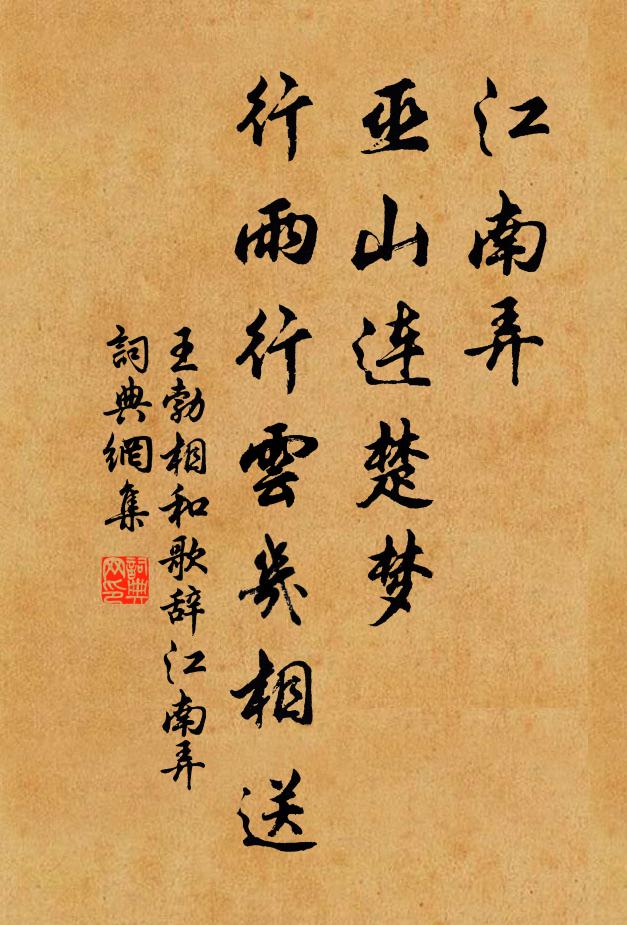 江南弄
巫山连楚梦
行雨行雲幾相送
王勃相和歌辞江南弄
詞典網集
詞典網印